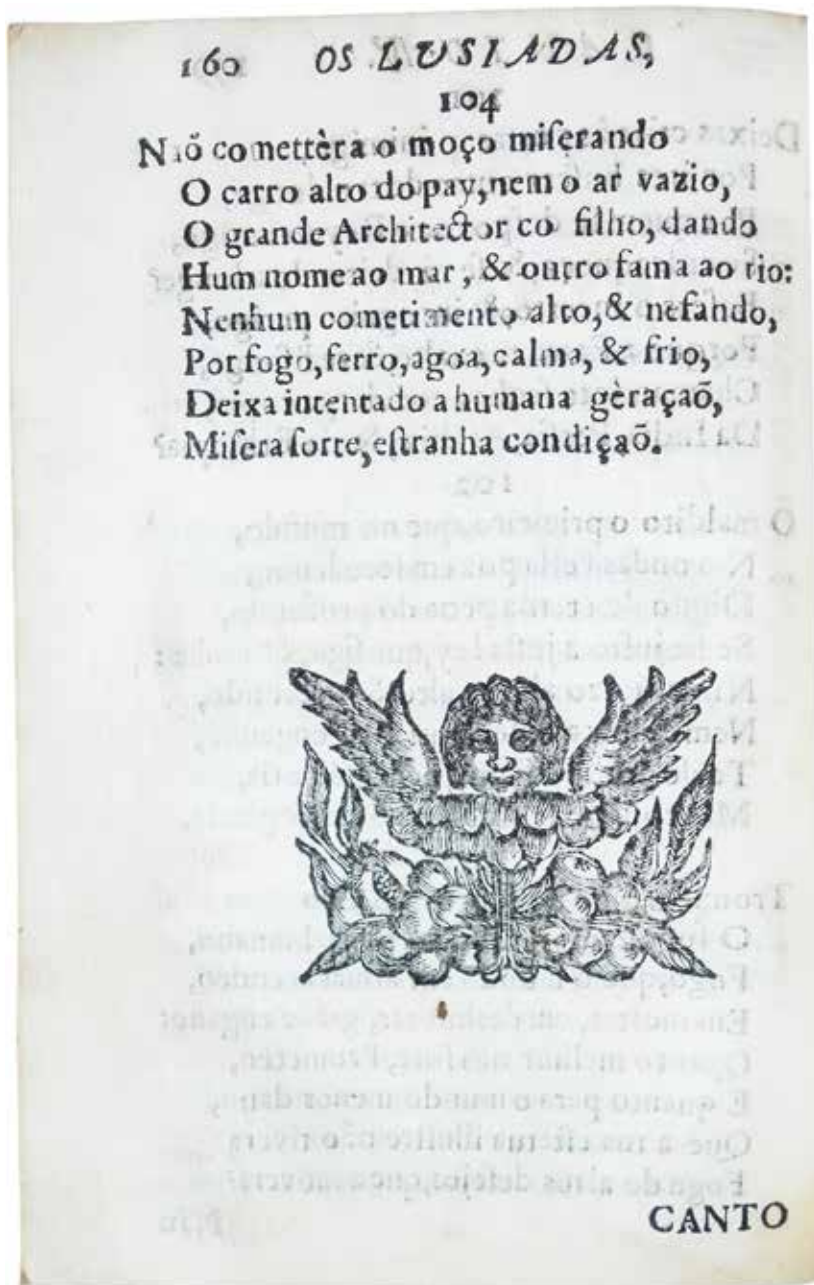 160 OS LUSIADAS,
104
Naõ comettèra o moço miſerando
O carro alto do pay, nem o ar vazio,
O grande Architector co filho, dando
Hum nome ao mar, & outro fama ao rio:
Nenhum cometimento alto, & nefando,
Por fogo, ferro, agoa, calma, & frio,
Deixa intentado a humana gèraçaõ,
Miſera ſorte, eſtranha condiçaõ.
CANTO